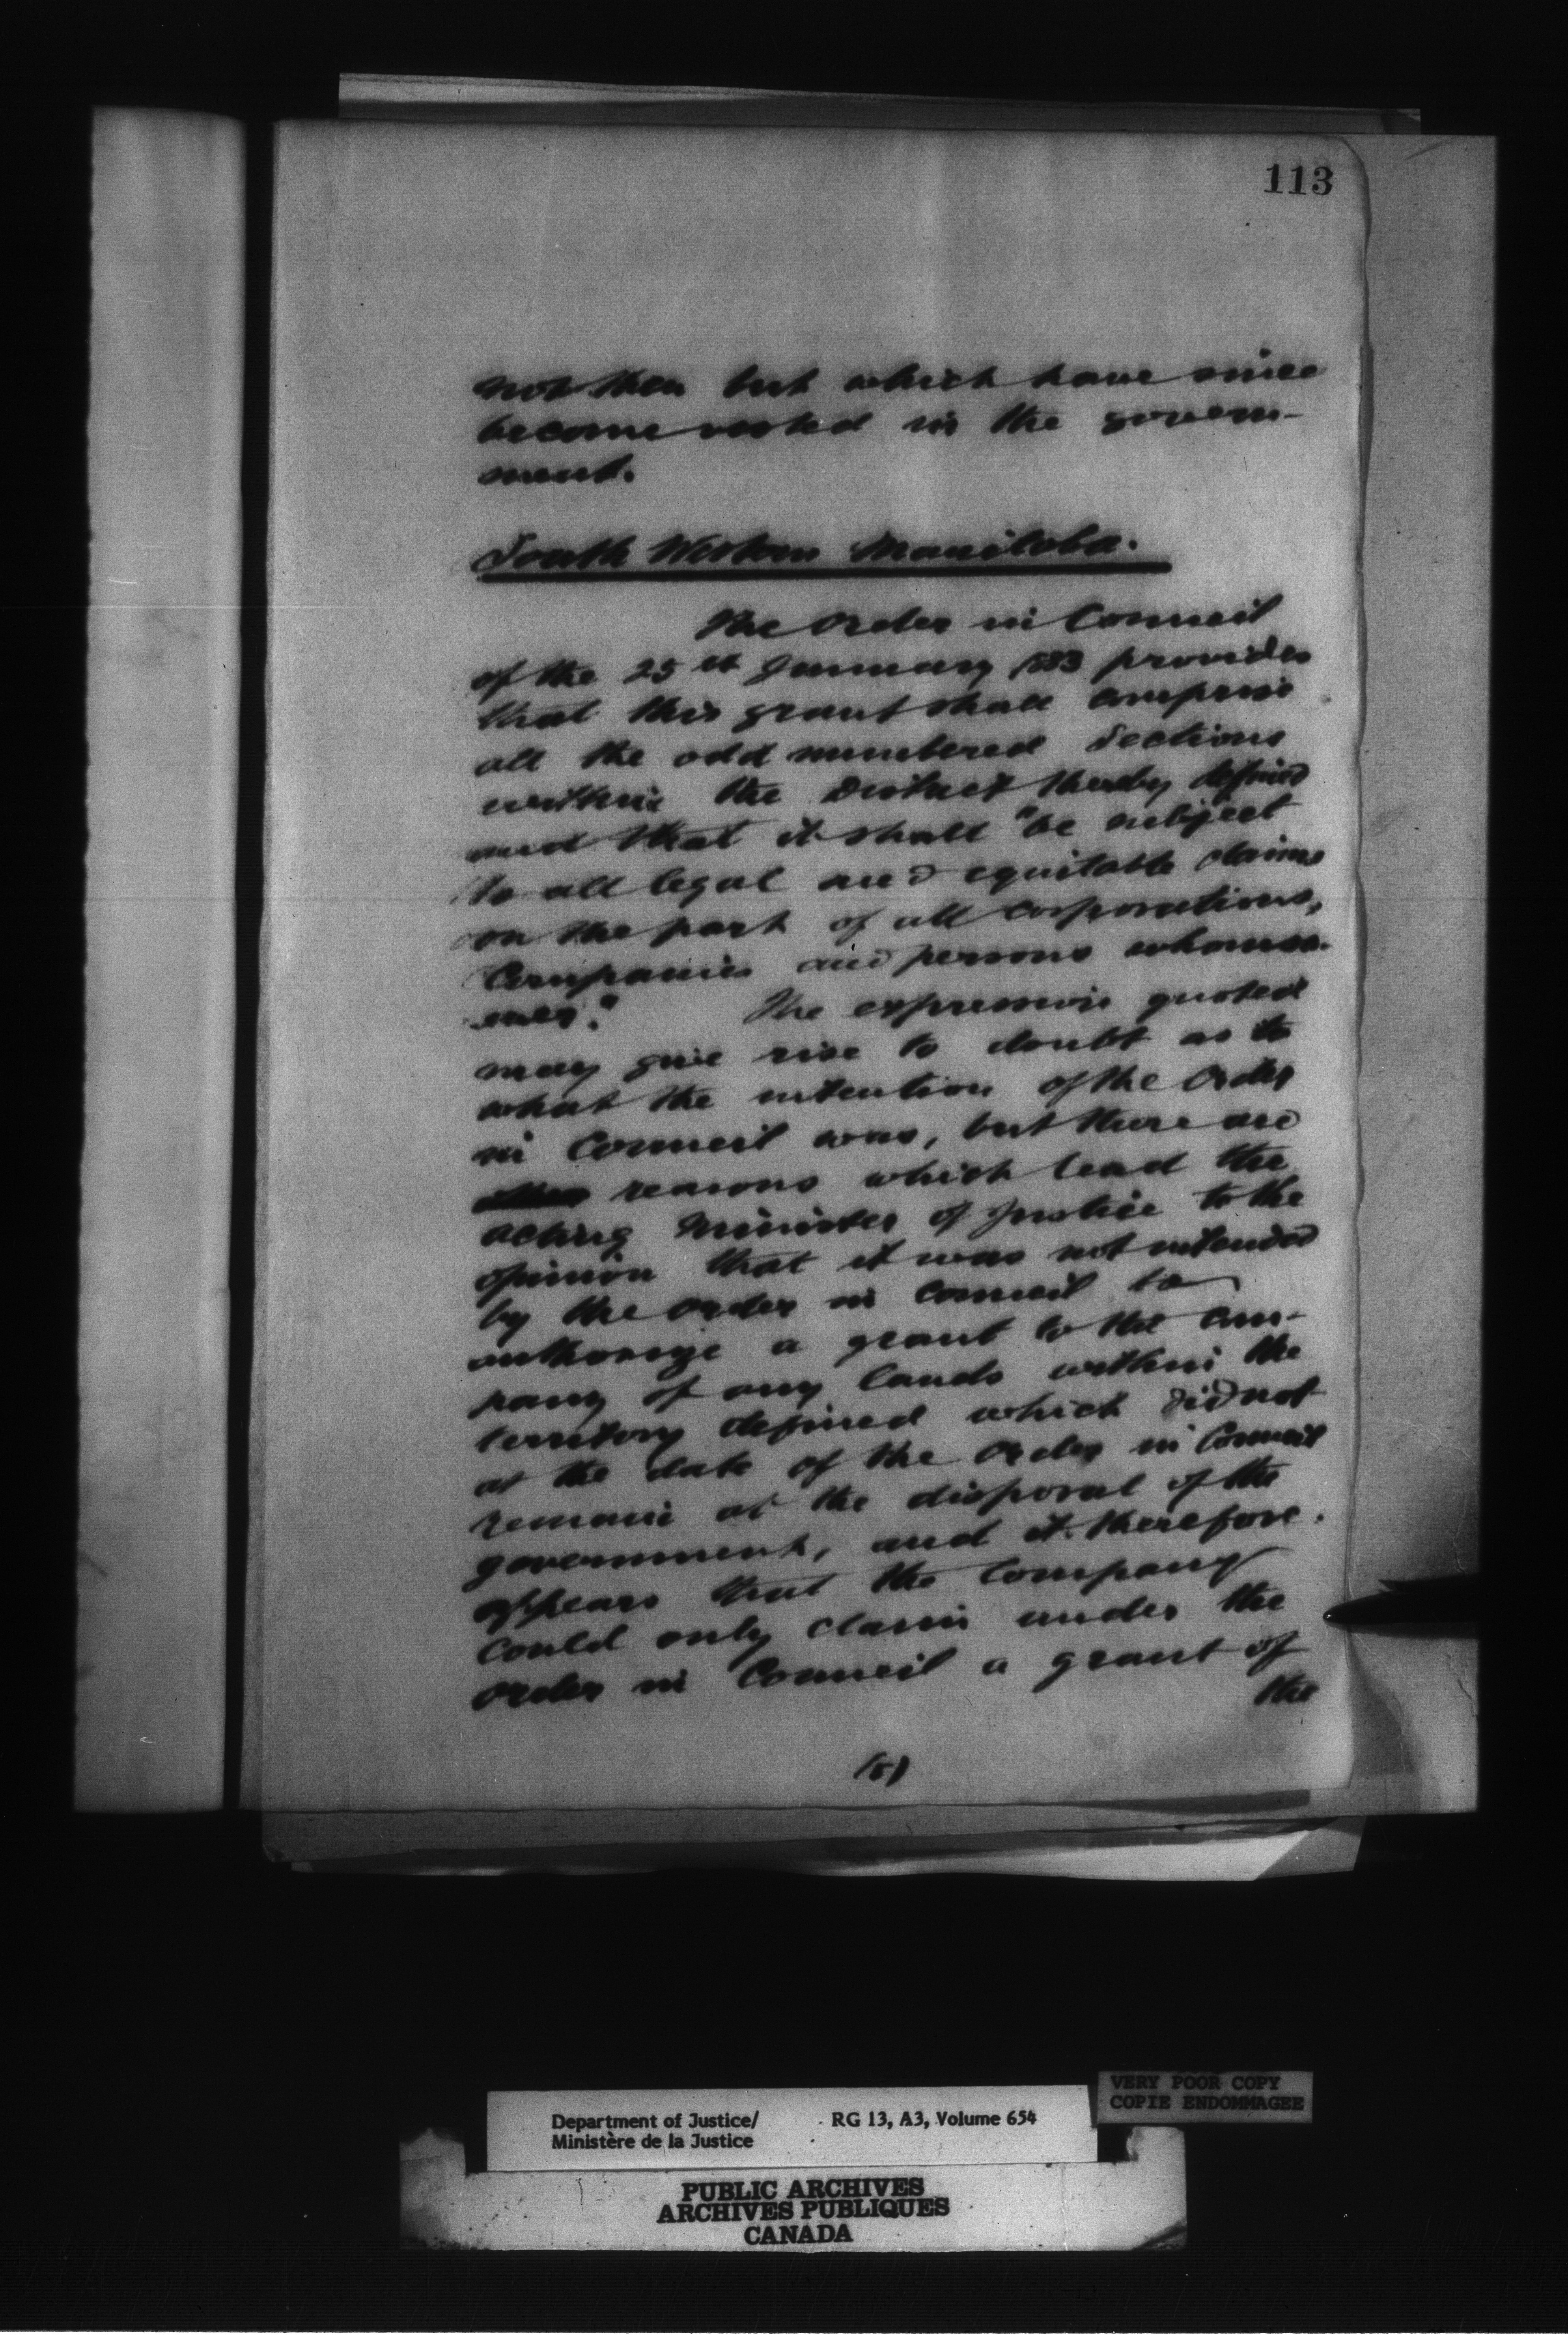 113
not then but which have since
become vested in the govern-
ment.
South Western Manitoba.
The Order in Council
of the 25th January 1883 provides
that this grant shall comprise
all the odd numbered Sections
within the District thereby defined
and that it shall "be subject
to all legal and equitable claims
on the part of all Corporations,
Companies and persons whomso-
ever." The expression quoted
may give rise to doubt as to
what the intention of the Order
in Council was, but there are
reasons which lead the
acting Minister of Justice to the
opinion that it was not intended
by the Order in Council to
authorize a grant to the Com-
pany of any lands within the
territory defined which did not
at the date of the Order in Council
remain at the disposal of the
government, and it therefore
appears that the Company
could only claim under the
Order in Council a grant of
the
VERY POOR COPY
COPIE ENDOMMAGEE
Department of Justice/ RG 13, A3, Volume 654
Ministère de la Justice
PUBLIC ARCHIVES
ARCHIVES PUBLIQUES
CANADA